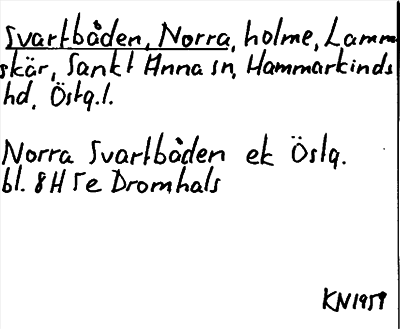 Svartbåden, Norra, holme, Lamm-
skär, Sankt Anna sn, Hammarkinds
hd, Östg.l.
Norra Svartbåden ek Östg.
bl. 8H 5e Dromhals
KN1959